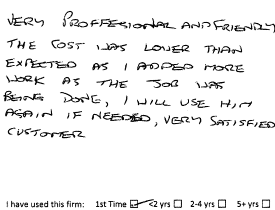 VERY PROFFESSIONAL AND FRIENDLY
THE COST WAS LOWER THAN
EXPECTED AS I ADDED MORE
WORK AS THE JOB WAS
BEING DONE, I WILL USE HIM
AGAIN IF NEEDED, VERY SATISFIED
CUSTOMER
I have used this firm: 1st Time ☑ <2 yrs ☐ 2-4 yrs ☐ 5+ yrs ☐